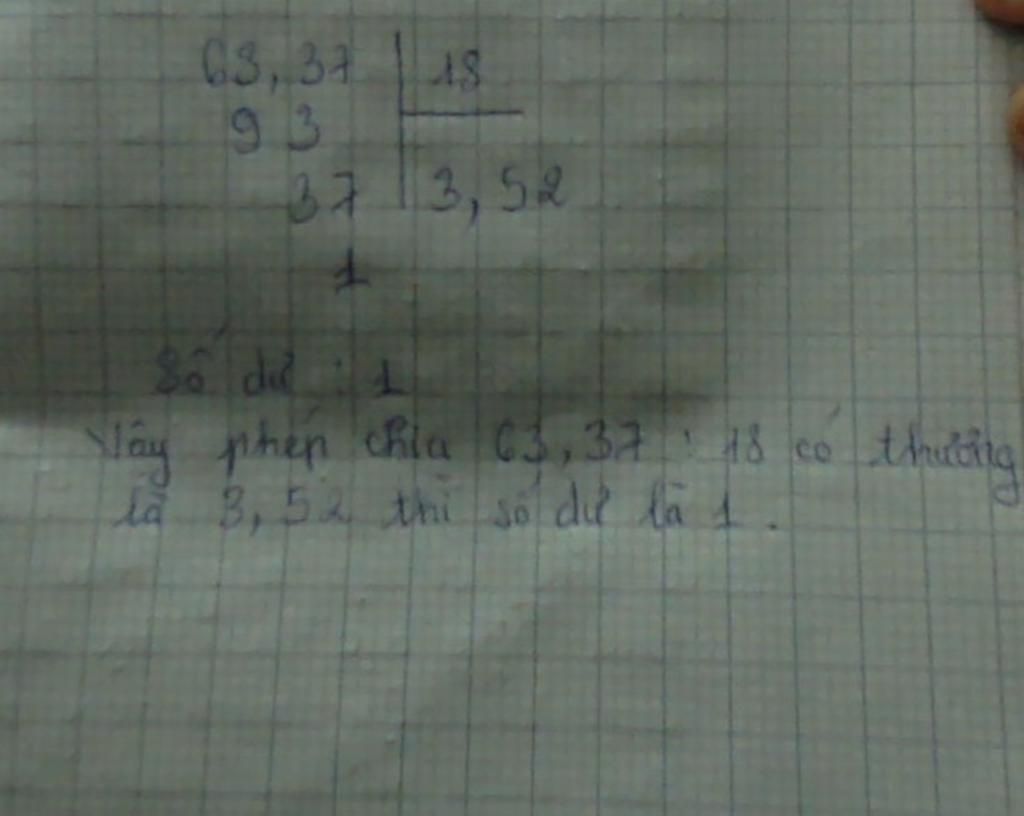 63,37 18
9 3
37 3,52
1
Số dư : 1
Vậy phép chia 63,37 : 18 có thương
là 3,52 thì số dư là 1.